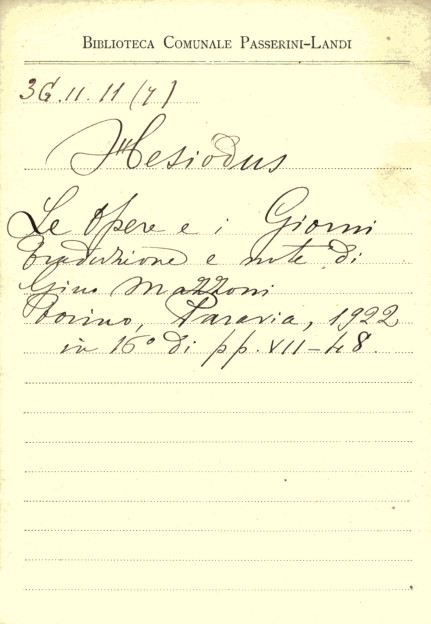 BIBLIOTECA COMUNALE PASSERINI-LANDI
3G.11.11 (7)
Hesiodus
Le Opere e i Giorni
Traduzione e note di
Gino Mazzoni
Torino, Paravia, 1922
in 16° di pp. VII-48.